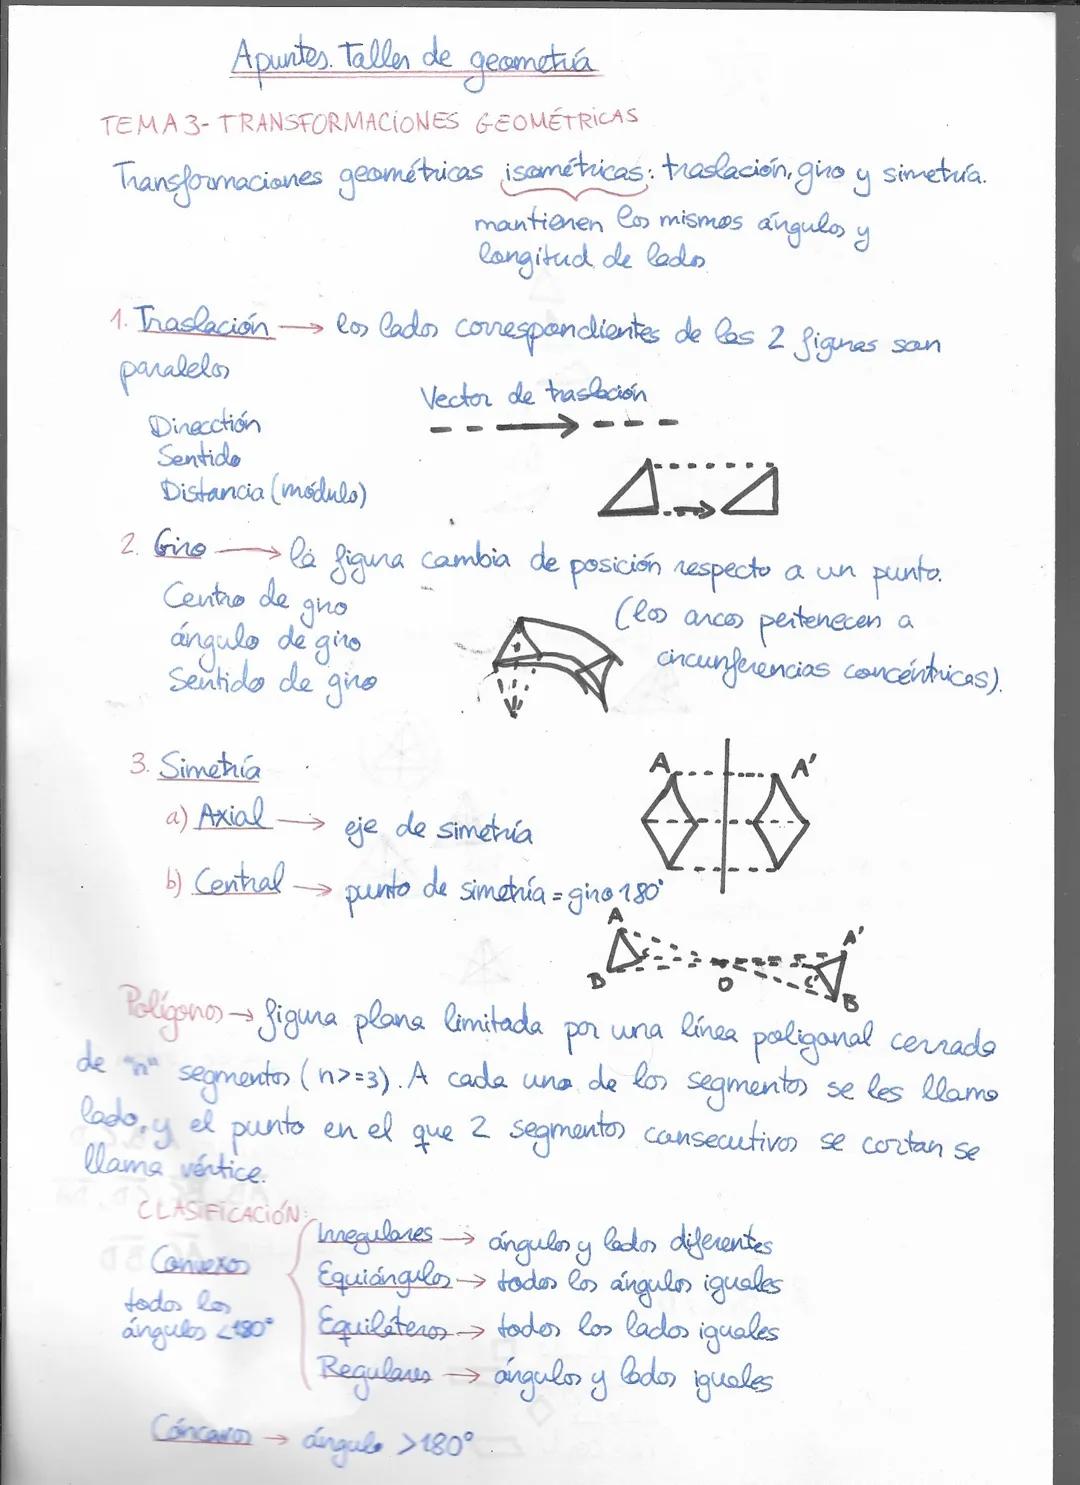 Apuntes. Taller de geometría
TEMA 3- TRANSFORMACIONES GEOMÉTRICAS
Transformaciones geométricas isométricas: traslación, giro y simetría.
mantienen los mismos ángulos y
longitud de lados
1. Traslación → los lados correspondientes de las 2 figuras son
paralelos
Vector de traslación
Dirección
Sentido
Distancia (módulo)
2. Giro → la figura cambia de posición respecto a un punto.
Centro de giro
(los arcos pertenecen a
ángulo de giro
circunferencias concéntricas).
Sentido de giro
3. Simetría
A A'
a) Axial → eje de simetría
b) Central → punto de simetría = giro 180°
A A'
B C O C' B
Polígonos → figura plana limitada por una línea poligonal cerrada
de "n" segmentos (n>=3). A cada uno de los segmentos se les llama
lado, y el punto en el que 2 segmentos consecutivos se cortan se
llama vértice.
CLASIFICACIÓN:
Irregulares → ángulos y lados diferentes
Convexos
Equiángulos → todos los ángulos iguales
todos los
ángulos <180°
Equiláteros → todos los lados iguales
Regulares → ángulos y lados iguales
Cóncavos → ángulo >180°